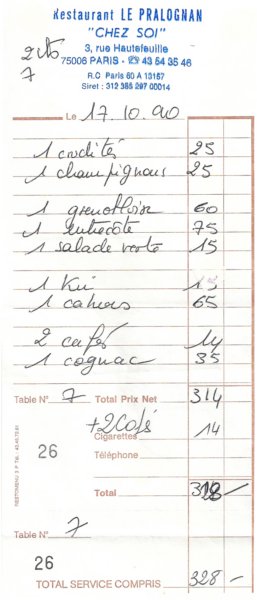 Restaurant LE PRALOGNAN
"CHEZ SOI"
3, rue Hautefeuille
75006 PARIS - ☎ 43 54 35 46
R.C Paris 60 A 13157
Siret : 312 355 297 00014
2 cts
7
Le 17.10.90
1 crudités 25
1 champignons 25
1 grenobloise 60
1 entrecôte 75
1 salade verte 15
1 Kir 15
1 cahors 65
2 cafés 14
1 cognac 35
Table N° 7 Total Prix Net 314
+2 Cafés
Cigarettes 14
26 Téléphone
Total 328-
Table N° 7
26
TOTAL SERVICE COMPRIS 328-